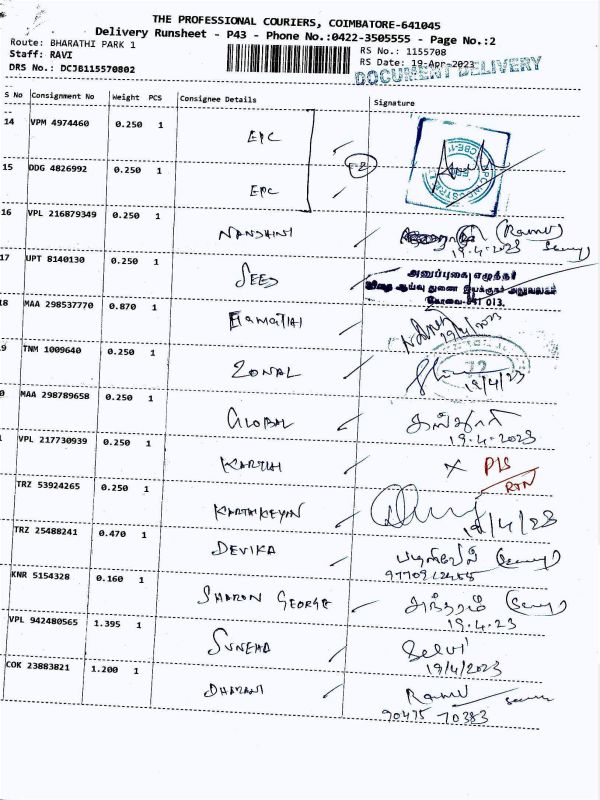 THE PROFESSIONAL COURIERS, COIMBATORE-641045
Delivery Runsheet - P43 - Phone No.:0422-3505555 - Page No.:2
Route: BHARATHI PARK 1
RS No.: 1155708
Staff: RAVI
RS Date: 19-Apr-2023
DRS No.: DCJB115570802
DOCUMENT DELIVERY
S No Consignment No Weight PCS Consignee Details Signature
14 VPM 4974460 0.250 1
EPC
15 DDG 4826992 0.250 1
EPC
16 VPL 216879349 0.250 1
NANDHINI (Ramu)
19.4.2023
17 UPT 8140130 0.250 1
அனுப்புகை எழுத்தர்
SEED
விதை ஆய்வு துணை இயக்குநர் அலுவலகம்
கோவை-641 013.
18 MAA 298537770 0.870 1
19/4/2023
19 TNM 1009640 0.250 1
ZONAL
19/4/23
0 MAA 298789658 0.250 1
GLOBAL
19.4.2023
VPL 217730939 0.250 1
KARTHI X PLS
RTN
TRZ 53924265 0.250 1
KARTHIKEYAN 19/4/23
TRZ 25488241 0.470 1
DEVIKA
KNR 5154328 0.160 1
SHARON GEORGE
19.4.23
VPL 942480565 1.395 1
SUNEHA Selvi
19/4/2023
COK 23883821 1.200 1
DHARANI Ramu
90475 70383